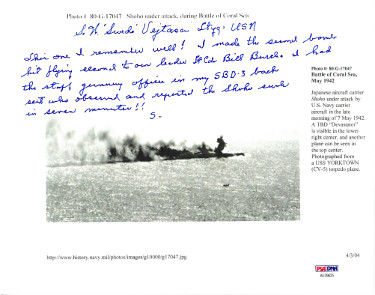 Photo # 80-G-17047 Shoho under attack, during Battle of Coral Sea,
S.W. "Swede" Vejtasa Ltjg: USN
This one I remember well! I made the second bomb
hit flying second to our leader Lt Cdr Bill Burch. I had
the staff gunnery officer in my SBD-3 back
seat who observed and reported the Shoho sunk
in seven minutes!!
S.
Photo # 80-G-17047
Battle of Coral Sea,
May 1942
Japanese aircraft carrier
Shoho under attack by
U.S. Navy carrier
aircraft in the late
morning of 7 May 1942.
A TBD "Devastator"
is visible in the lower
right center, and another
plane can be seen in
the top center.
Photographed from
a USS YORKTOWN
(CV-5) torpedo plane.
http://www.history.navy.mil/photos/images/g10000/g17047.jpg
4/3/04
PSA DNA